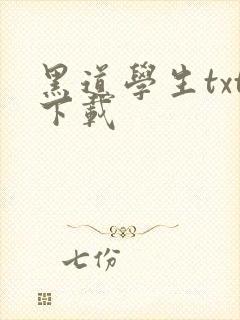 黑道學生txt
下載
七份